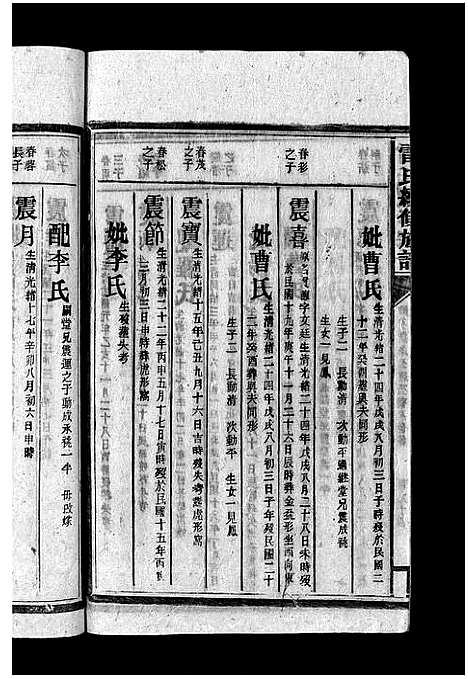 雷氏續修族譜
妣曹氏 生清光緒二十四年戊戌八月初三日子時歿於民國三
十二年癸
生子二 長勳清 次勳平 過繼堂兄震
生女一見鳳
春彩
之子
震喜 字亥廷生清光緒二十四年戊戌八月二十八日未時歿
於民國十九年庚午十一月二十六日辰時葬金盆形坐西向東
妣曹氏 生清光緒二十四年戊戌八月初三日子時歿民國三十
二年癸酉葬與夫同形
生子二 長勳清 次勳平 生女一見鳳
春茂
之子
震寶 生清光緒十五年己丑九月十六日吉時歿失考葬虎形窩
春松
之子
震節 生清光緒二十二年丙申五月十七日寅時歿於民國十五年丙寅
二月初三日申時葬虎形窩
妣李氏 生歿葬失考
春蓉
長子
震月 生清光緒十七年辛卯八月初六日申時
配李氏 嗣堂兄震運之子勳成承祧一半